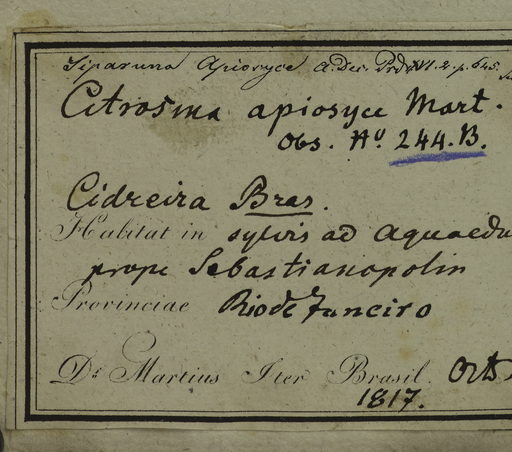 Siparuna Apiosyce A. Dec. Prd. XVI. 2. p. 645.
Citrosma apiosyce Mart.
Obs. No 244.B.
Cidreira Bras.
Habitat in sylvis ad aquaedu
prope Sebastianopolin
Provinciae Rio de Janeiro
Dr. Martius Iter Brasil. Octb
1817.